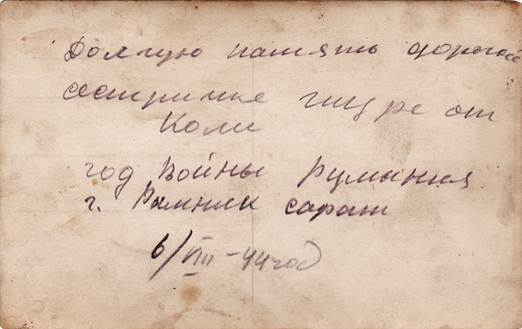 Долгую память дорогой
сестричке от
Коли
год Войны Румыния
г. Рымник сарат
6/VIII-44 год